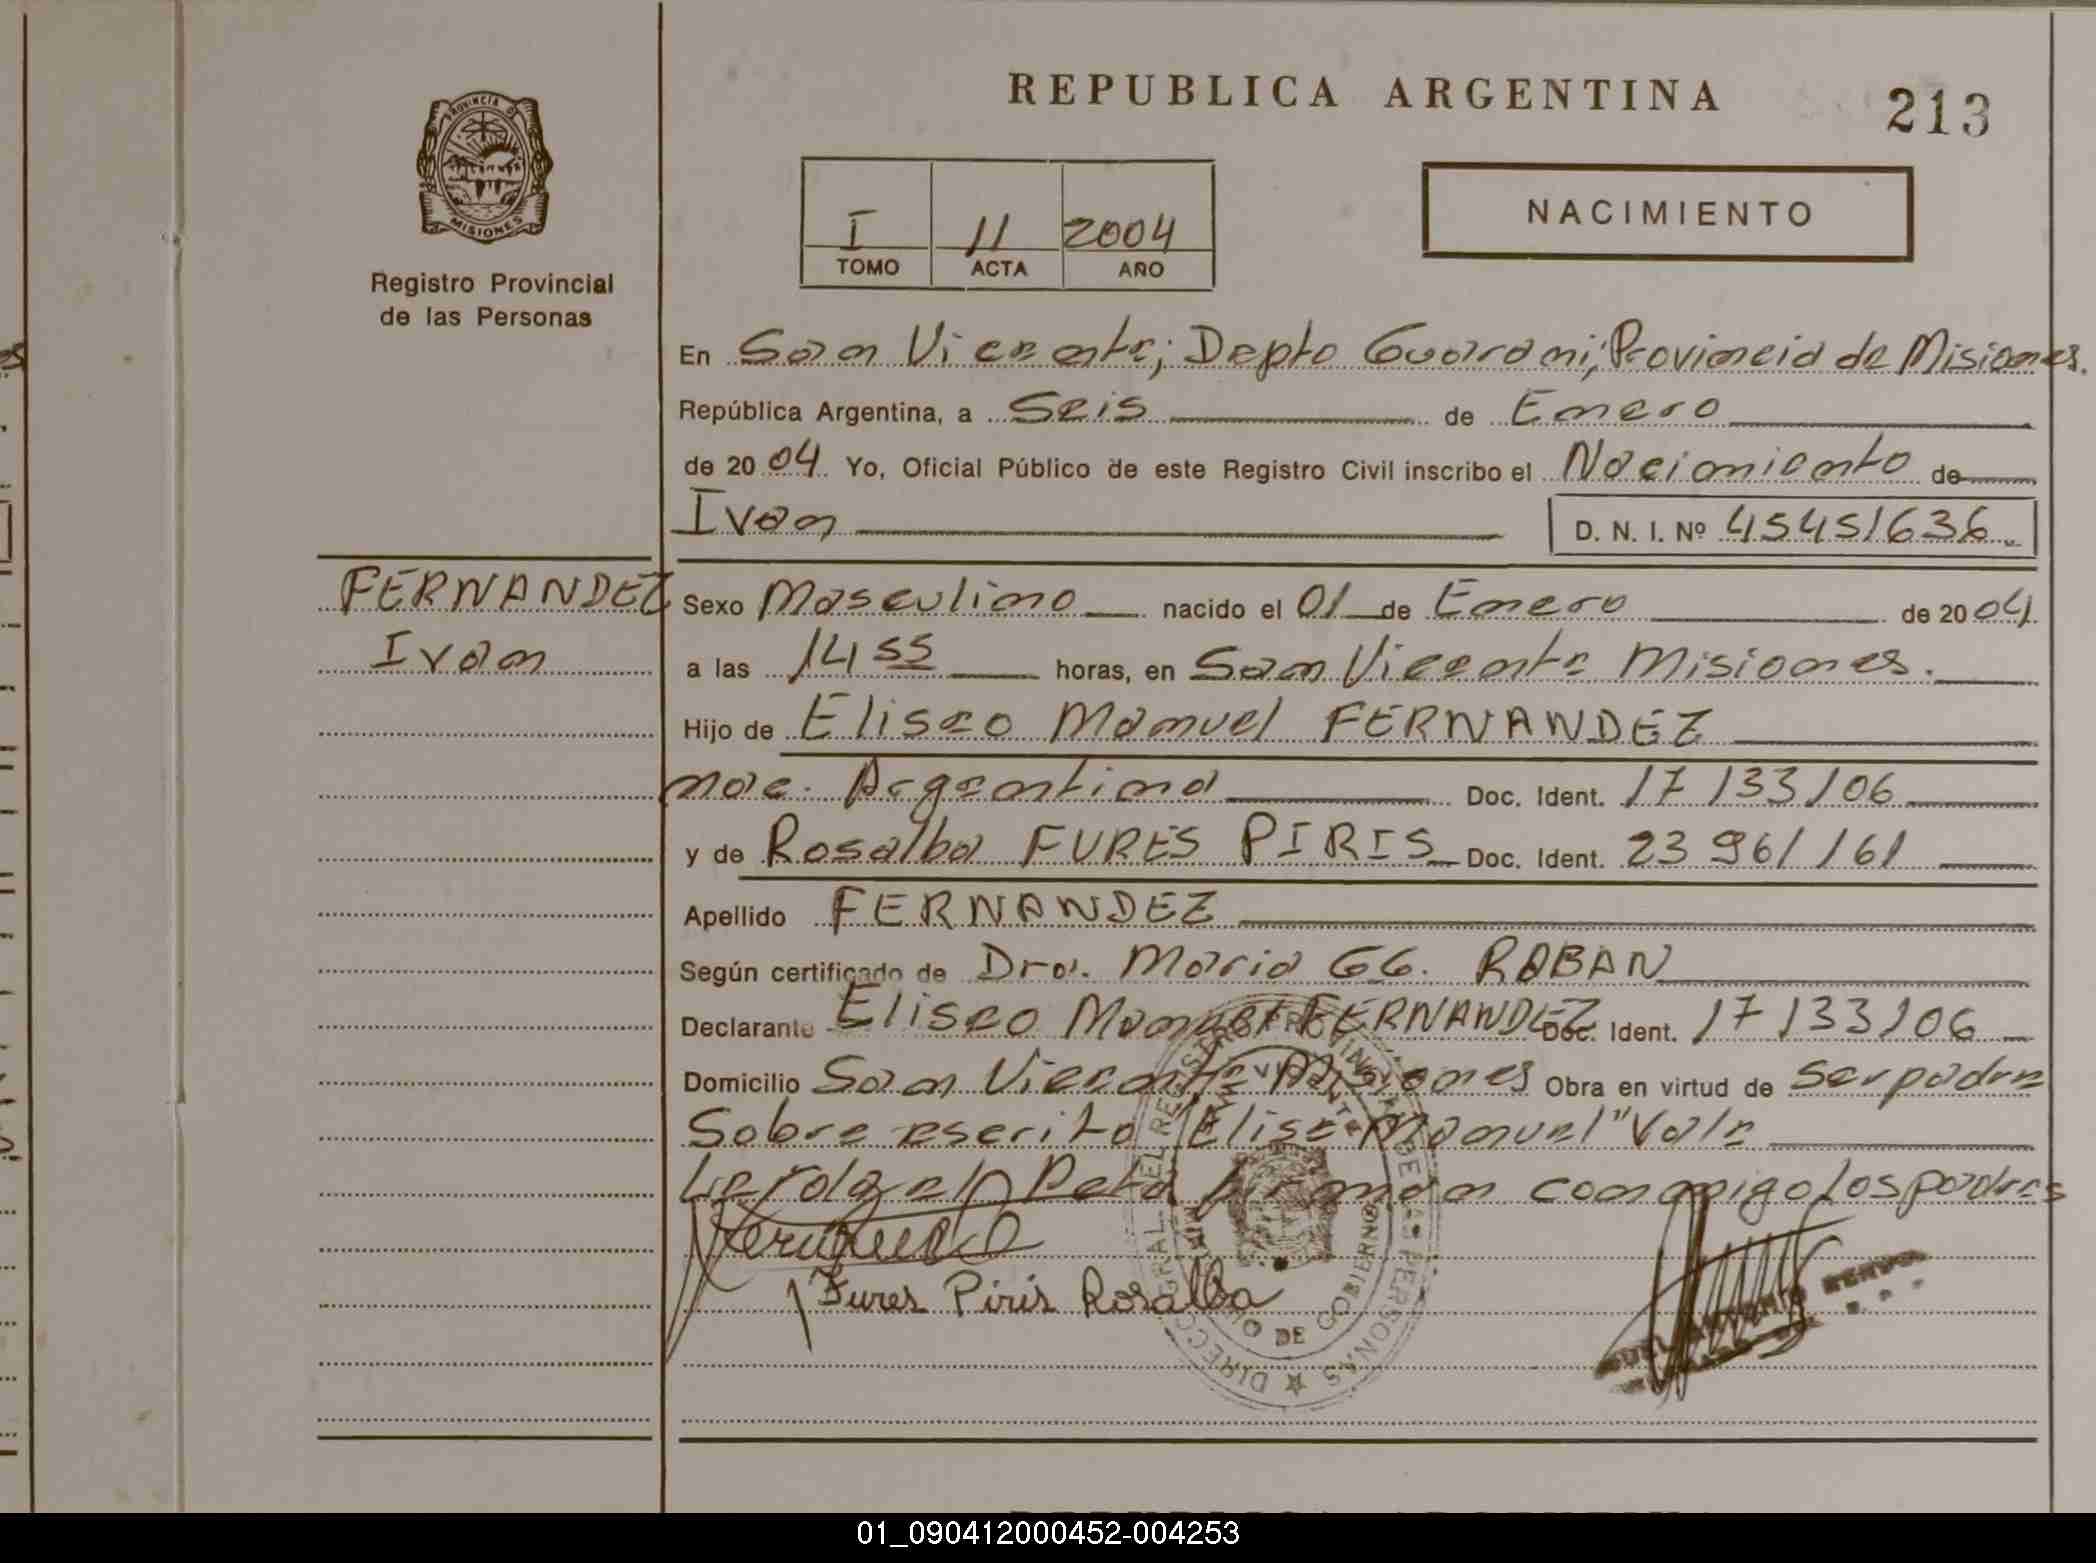 REPUBLICA ARGENTINA
213
PROVINCIA DE
MISIONES
Registro Provincial
de las Personas
I 11 2004
TOMO ACTA AÑO
NACIMIENTO
En San Vicente, Depto Guarani, Provincia de Misiones.
República Argentina, a Seis de Enero
de 2004. Yo, Oficial Público de este Registro Civil inscribo el Nacimiento de
Ivan D. N. I. Nº 45451636
FERNANDEZ
Ivan
Sexo Masculino nacido el 01 de Enero de 2004
a las 14 55 horas, en San Vicente Misiones.
Hijo de Eliseo Manuel FERNANDEZ
nac. Argentina Doc. Ident. 17 133 106
y de Rosalba FURES PIRIS Doc. Ident. 23 961 161
Apellido FERNANDEZ
Según certificado de Dra. Maria GG. RABAN
Declarante Eliseo Manuel FERNANDEZ Doc. Ident. 17 133 106
Domicilio San Vicente Misiones Obra en virtud de Ser padre
Sobre escrito "Elise Manuel" Vale
Leida el Acta firman conmigo Los padres
Fures Piris Rosalba
DIRECC. GRAL. DEL REGISTRO PROVINCIAL DE LAS PERSONAS
DE GOBIERNO
01_090412000452-004253